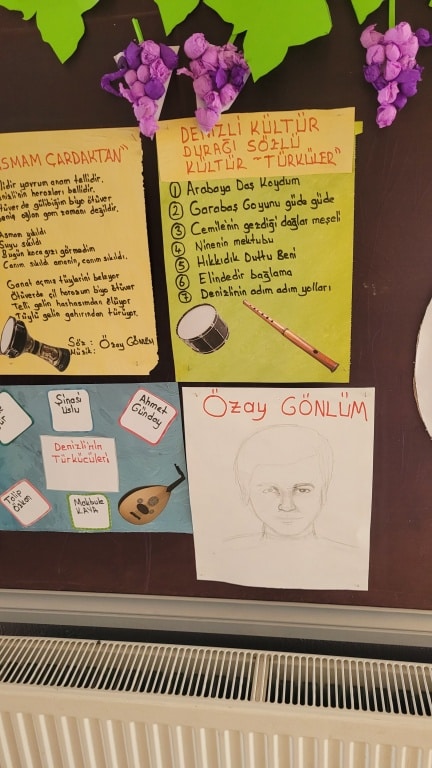 ASMAM ÇARDAKTAN"
yavrum anam tellidir.
horozları bellidir.
gülibiğim biyo ötüver
oğlan gam zamanı değildir.
Asmam yıkıldı
Suyu sıkıldı
Bugün bana gızı görmedim
Canım sıkıldı amanin, canım sıkıldı.
Ganat açmış tüylerini belleyor
Ötüverde çil horozum biyo ötüver
Telli gelin hastasından ölüyor
Tüylü gelin gahırından türüyor.
Söz : Özay GÖNLÜM
Müzik:
DENİZLİ KÜLTÜR
DURAĞI SÖZLÜ
KÜLTÜR "TÜRKÜLER"
1 Arabaya Daş Koydum
2 Garabaş Goyunu güde güde
3 Cemilenin gezdiği dağlar meşeli
4 Ninenin mektubu
5 Hıkkıdık Duttu Beni
6 Elindedir bağlama
7 Denizlinin adım adım yolları
Şinasi
Uslu
Ahmet
Günday
Denizli'nin
Türkücüleri
Talip
Özkan
Makbule
KAYA
Özay GÖNLÜM